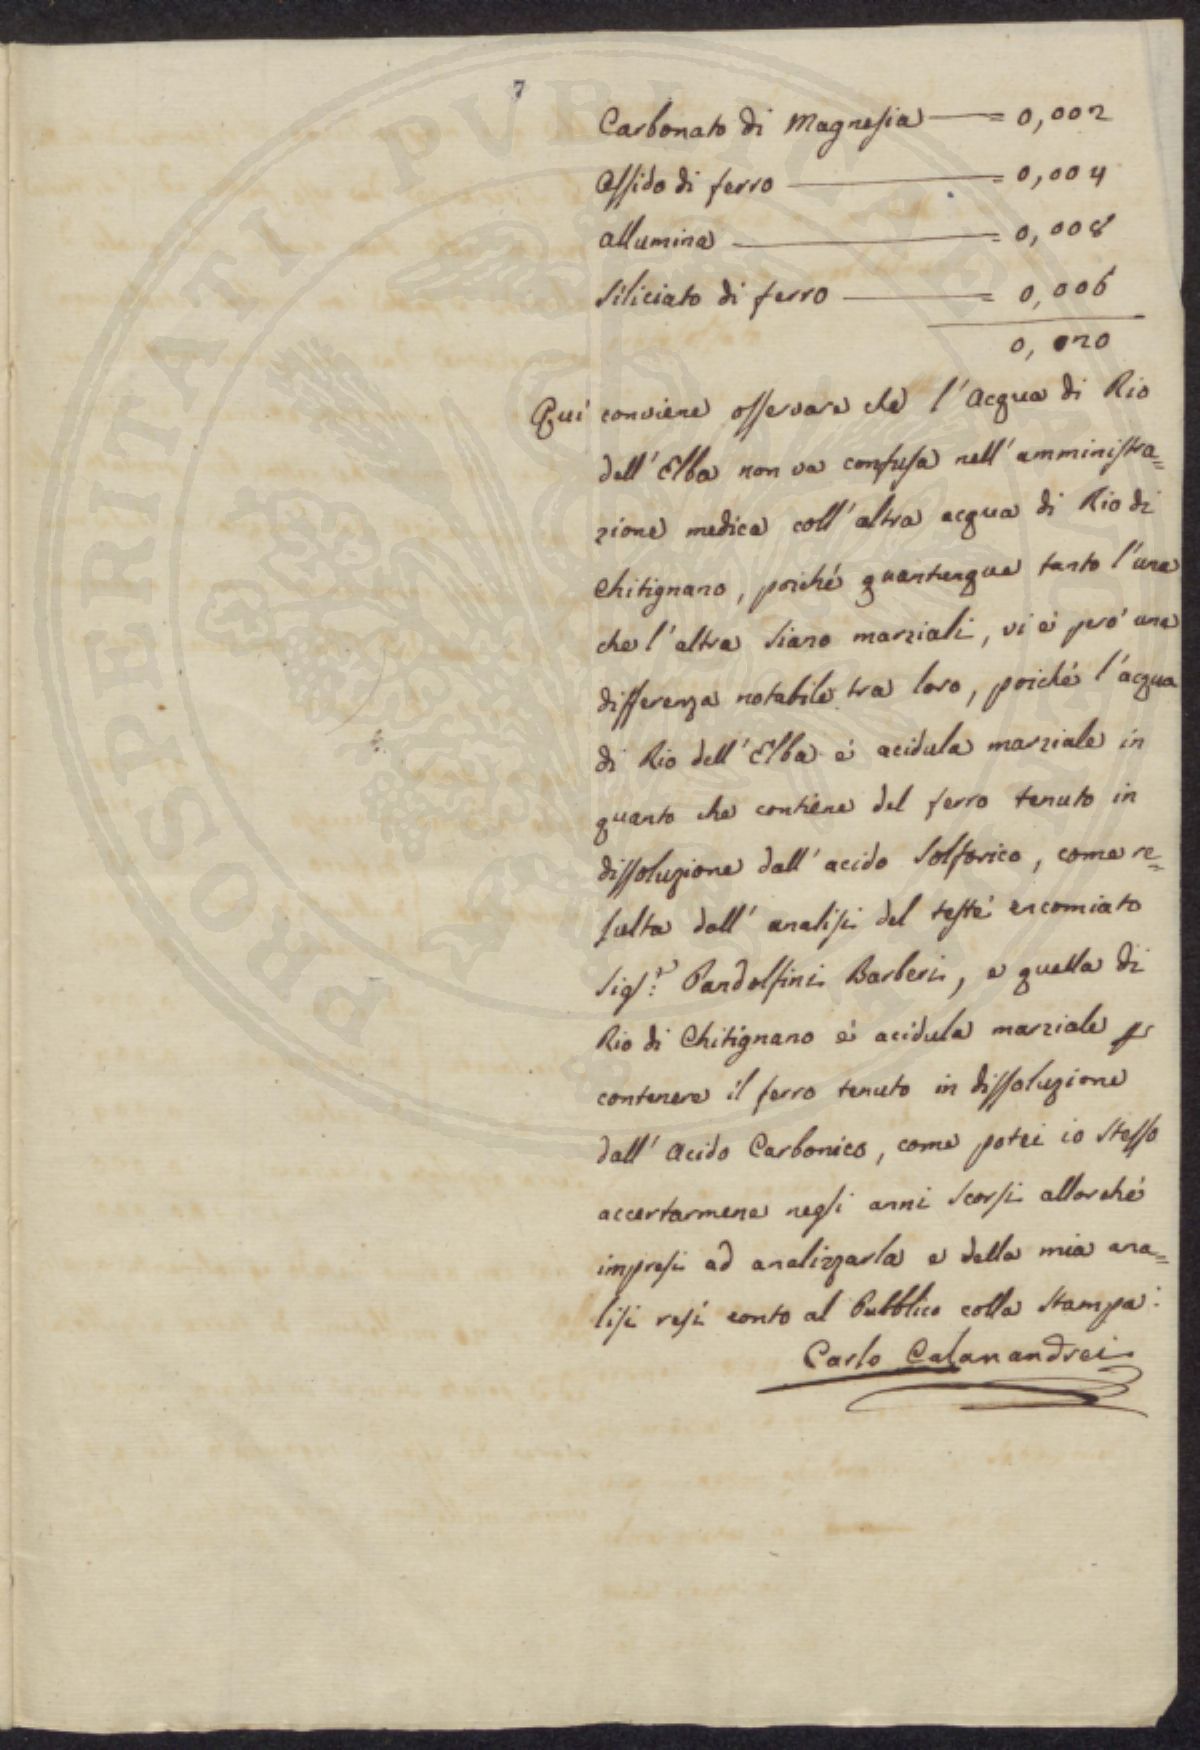 7
PROSPERITATI PUBLICAE
Carbonato di Magnesia = 0,002
Ossido di ferro = 0,004
allumina = 0,008
siliciato di ferro = 0,006
0,020
Qui conviene osservare che l'Acqua di Rio
dell'Elba non va confusa nell'amministra=
zione medica coll'altra acqua di Rio di
Chitignano, poiché quantunque tanto l'una
che l'altra siano marziali, vi é peró una
differenza notabile tra loro, poiché l'acqua
di Rio dell'Elba é acidula marziale in
quanto che contiene del ferro tenuto in
dissoluzione dall'acido solforico, come re=
sulta dall'analisi del testé encomiato
Sig.r Pandolfini Barberi, e quella di
Rio di Chitignano é acidula marziale p
contenere il ferro tenuto in dissoluzione
dall'Acido Carbonico, come potei io stesso
accertarmene negli anni scorsi allorché
impresi ad analizzarla e della mia ana=
lisi resi conto al Pubblico colla stampa.
Carlo Calamandrei